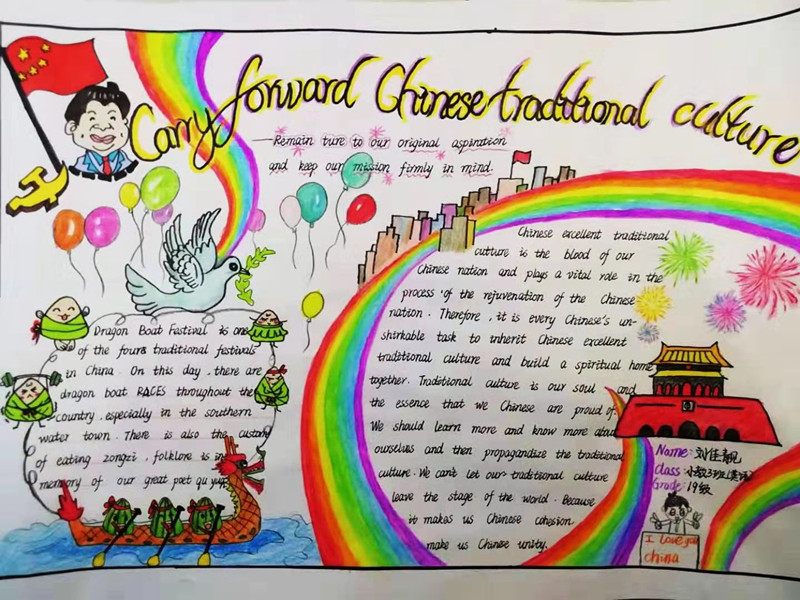 Carry forward Chinese traditional culture
—Remain ture to our original aspiration
and keep our mission firmly in mind.
Dragon Boat Festival is one
of the fours traditional festivals
in China. On this day, there are
dragon boat RACES throughout the
country, especially in the southern
water town. There is also the custom
of eating zongzi, folklore is in
memory of our great poet qu yuan
Chinese excellent traditional
culture is the blood of our
Chinese nation and plays a vital role in the
process of the rejuvenation of the Chinese
nation. Therefore, it is every Chinese's un-
shirkable task to inherit Chinese excellent
traditional culture and build a spiritual home
together. Traditional culture is our soul and
the essence that we Chinese are proud of.
We should learn more and know more about
ourselves and then propagandize the traditional
culture. We can't let our traditional culture
leave the stage of the world. Because
it makes us Chinese cohesion.
make us Chinese unity.
Name: 刘佳靓
Class: 小教3班(英语)
Grade: 19级
I love you
china